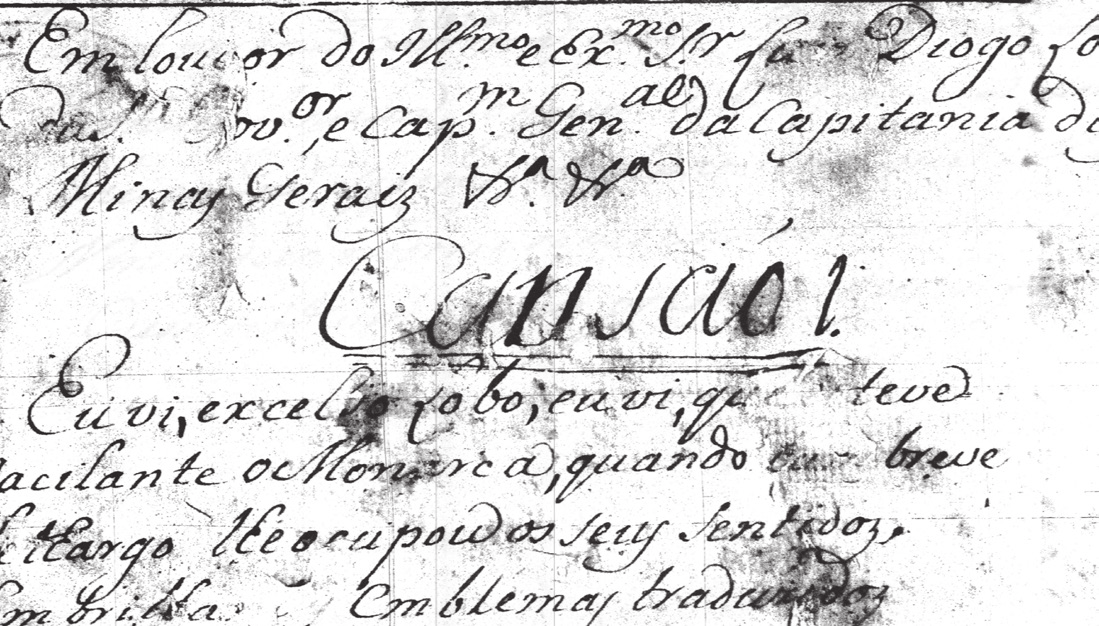 Em louvor do Ill.mo e Ex.mo S.r Diogo Lo
da ov.or, e Cap.m Gen.al da Capitania de
Minas Geraiz &.a &.a
Cansaó 1.
Eu vi, excelso Lobo, eu vi, que teve
acilante o Monarca, quando breve
Letthargo lhe ocupou dos seus sentidoz,
Emblemas traduzidoz